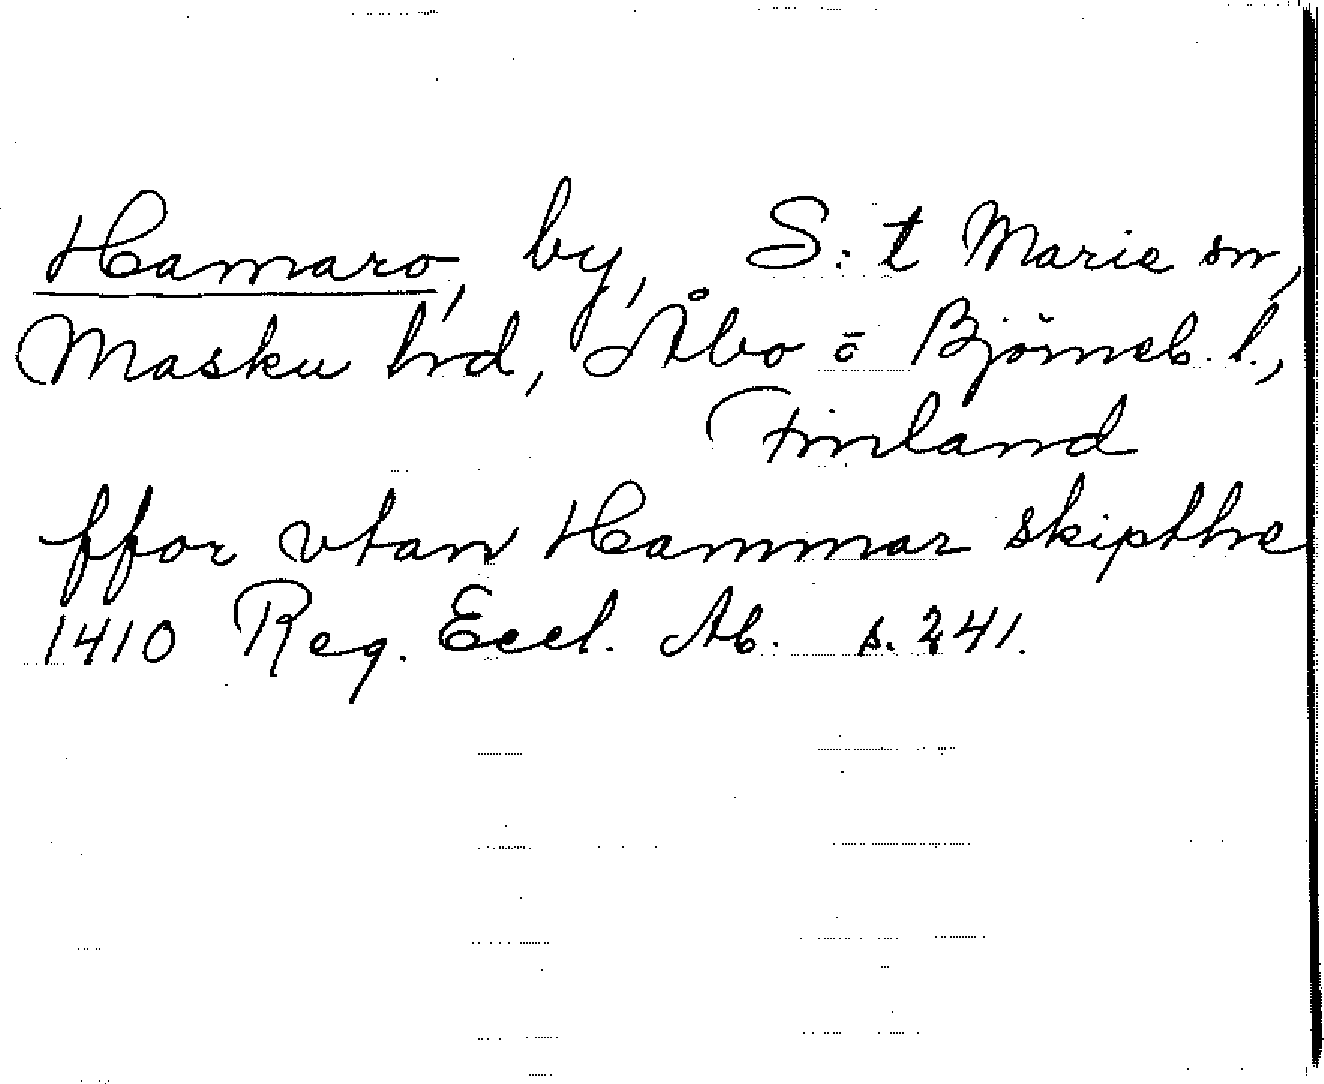 Hamaro, by, S:t Marie sn,
Masku hrd, Åbo o Björneb. l.,
Finland
ffor vtan Hammar skipthe
1410 Reg. Eccl. Ab. s. 241.